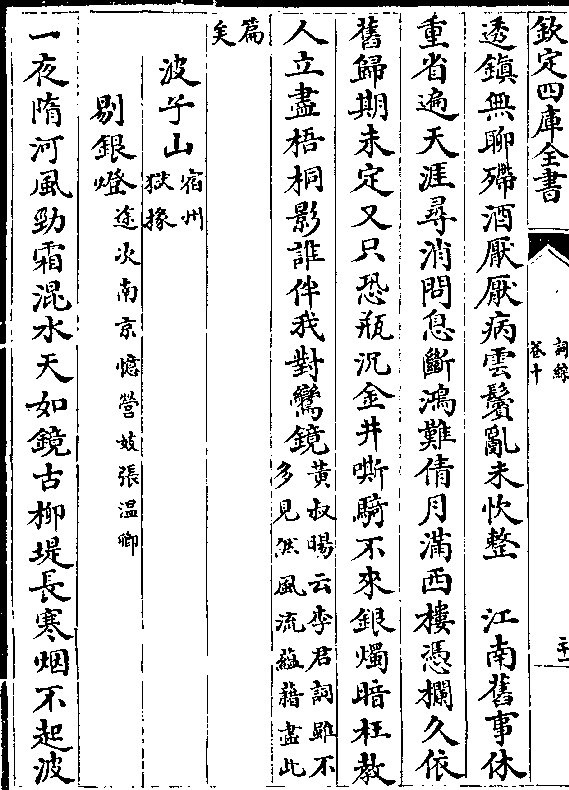 欽定四庫全書
詞綜
卷十
二十一
透鎭無聊殢酒厭厭病雲鬟亂未忺整　江南舊事休
重省遍天涯尋消問息斷鴻難倩月滿西樓憑欄久依
舊歸期未定又只恐瓶沉金井嘶騎不來銀燭暗枉敎
人立盡梧桐影誰伴我對鸞鏡黃叔暘云李君詞雖不
多見然風流蘊藉盡此
篇
矣
沈子山宿州
獄掾
剔銀燈途次南京憶營妓張溫卿
一夜隋河風勁霜混水天如鏡古柳堤長寒烟不起波